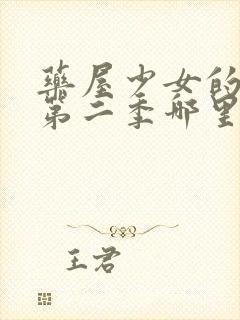 藥屋少女的
第二季哪里
王君